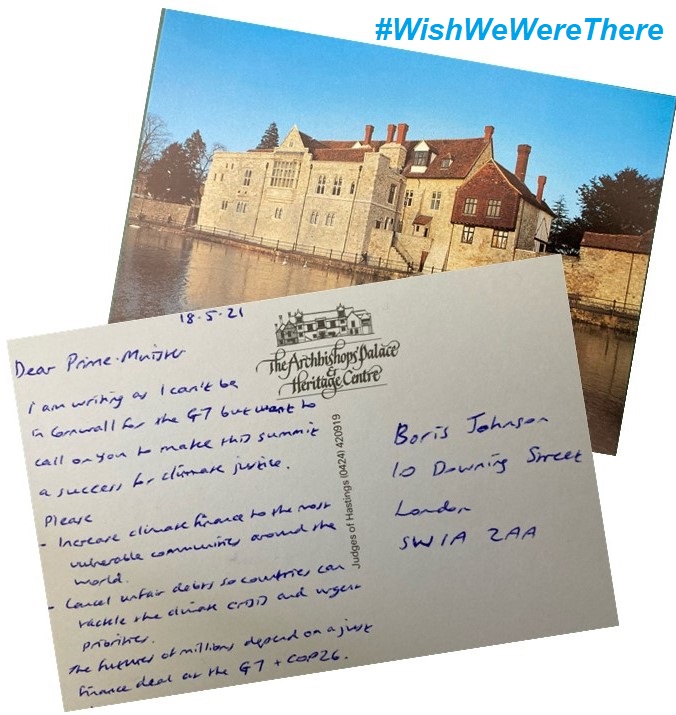 #WishWeWereThere
18.5.21
Dear Prime Minister
I am writing as I can't be
in Cornwall for the G7 but want to
call on you to make this summit
a success for climate justice.
Please
- Increase climate finance to the most
vulnerable communities around the
world.
- Cancel unfair debts so countries can
tackle the climate crisis and urgent
priorities.
The futures of millions depend on a just
finance deal at the G7 + COP26.
The Archbishops' Palace
&
Heritage Centre
Judges of Hastings (0424) 420919
Boris Johnson
10 Downing Street
London
SW1A 2AA